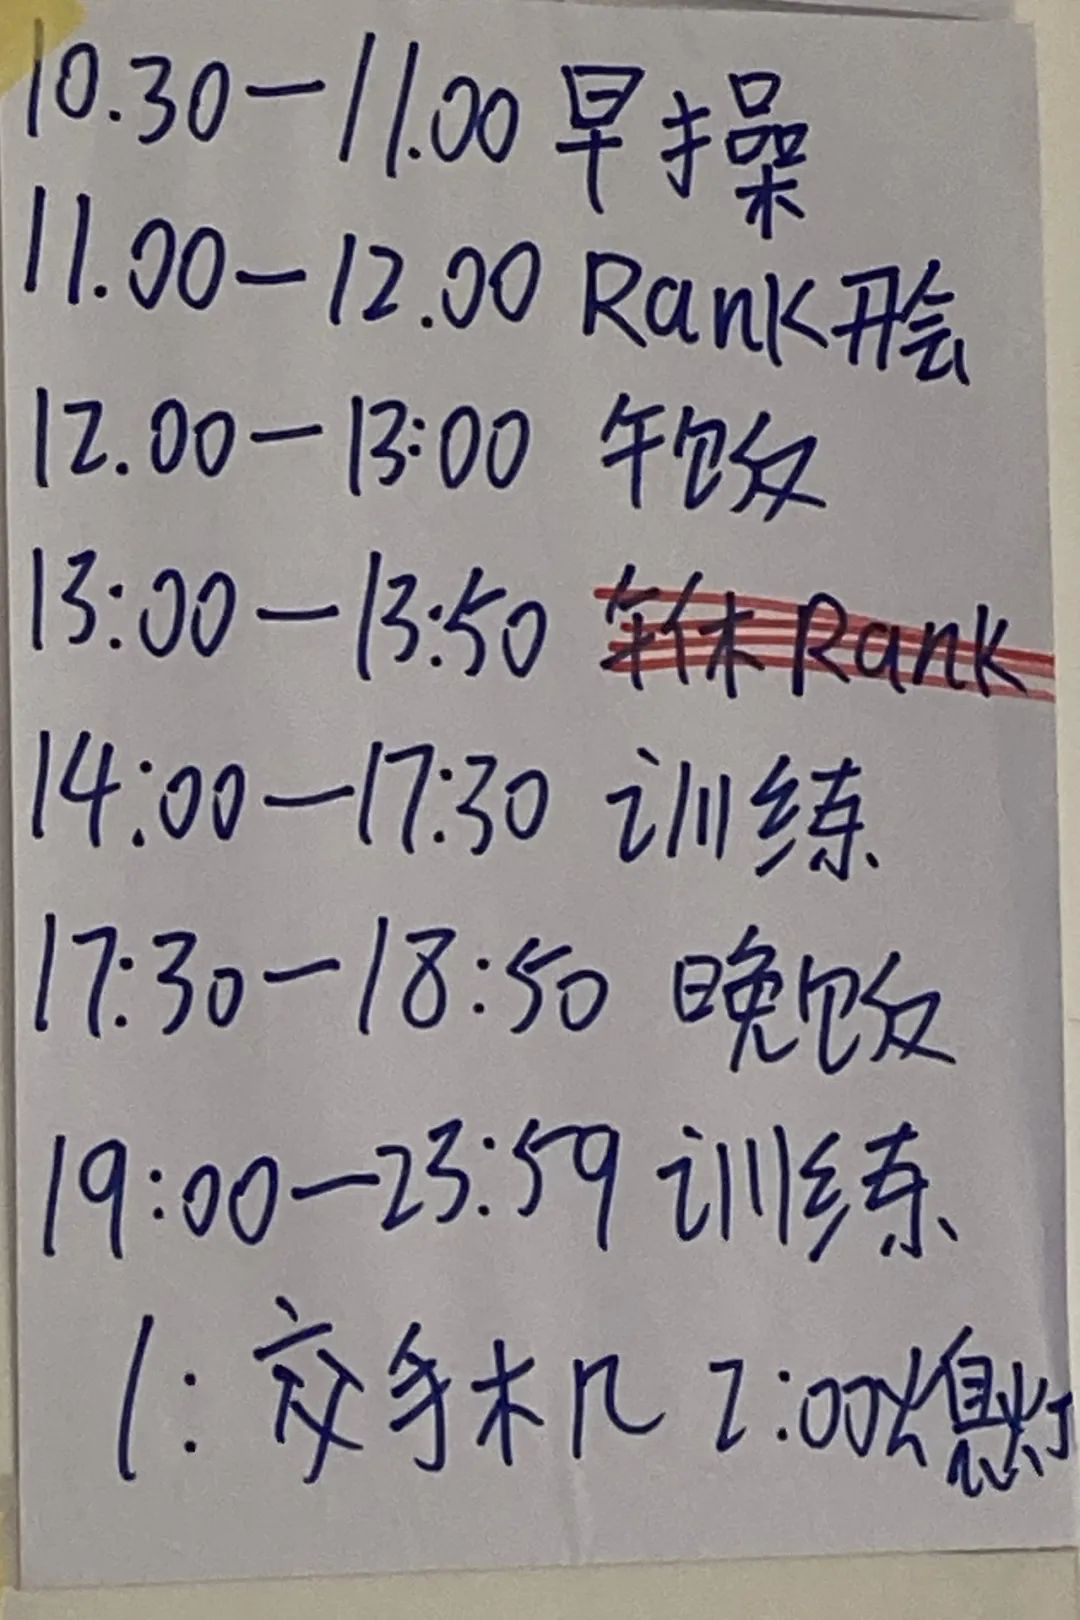 10.30-11.00 早操
11.00-12.00 Rank开会
12.00-13:00 午饭
13:00-13:50 午休Rank
14:00-17:30 训练
17:30-18:50 晚饭
19:00-23:59 训练
1: 交手机 2:00熄灯